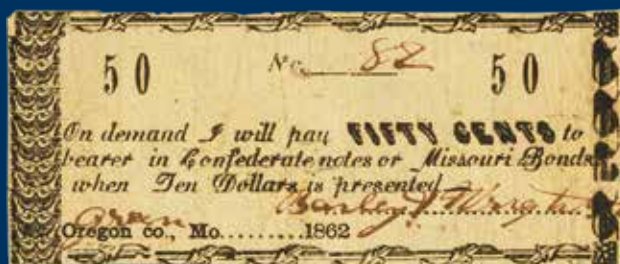 50 No. 82 50
On demand I will pay FIFTY CENTS to
bearer in Confederate notes or Missouri Bonds
when Ten Dollars is presented
Oregon co., Mo.........1862